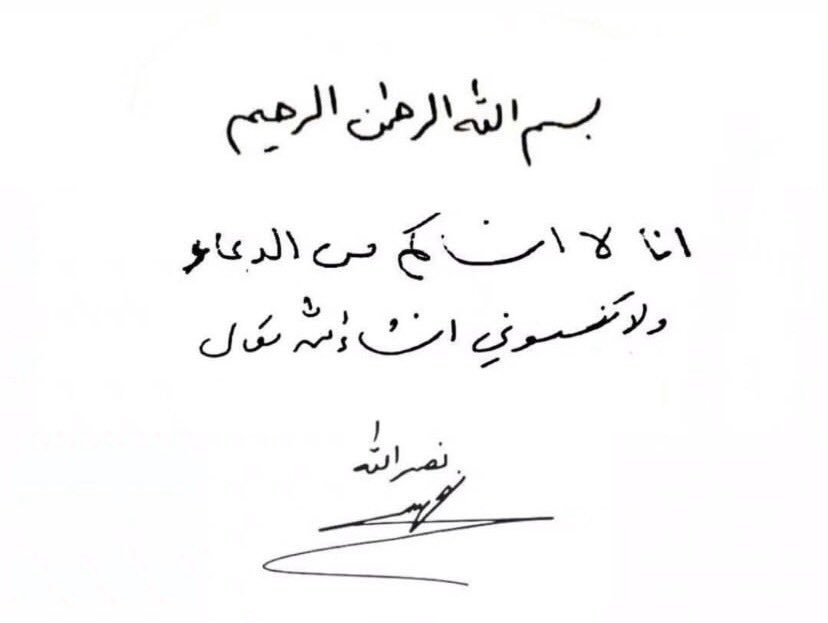 بسم الله الرحمٰن الرحيم
انا لا انساكم من الدعاء
ولا تنسوني انشاءالله تعالى
نصرالله